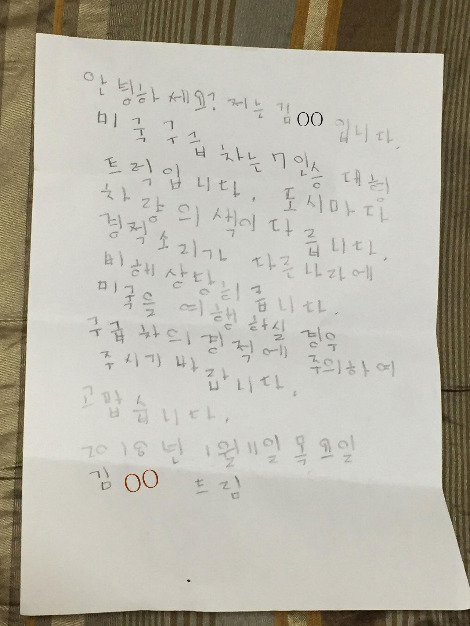 안녕하세요? 저는 김OO
입니다.
미국 구급차는 7인승 대형
트럭입니다. 도시마다
차량의 색이 다릅니다.
경적 소리가 다른 나라에
비해 상당히 큽니다.
미국을 여행하실 경우
구급차의 경적에 주의하여
주시기 바랍니다.
고맙습니다.
2018년 1월 목요일
김OO 드림